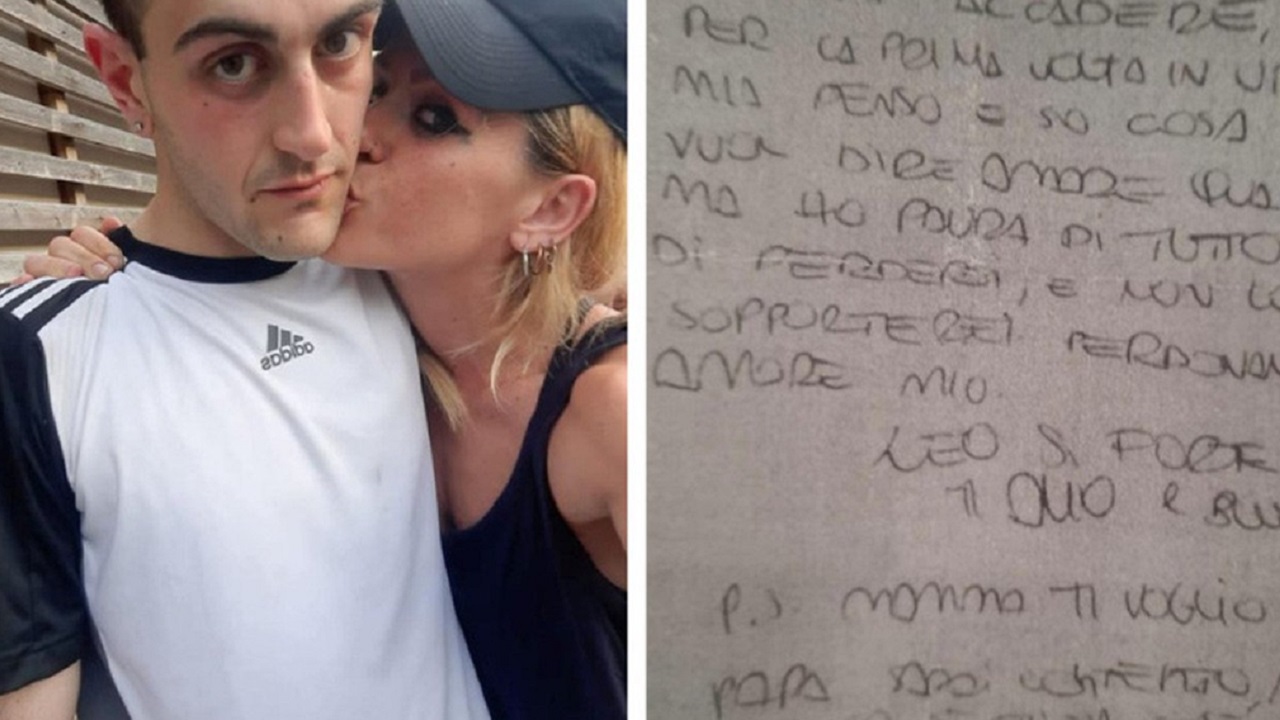 adidas
ACCADERE,
PER LA PRIMA VOLTA IN VI
MIA PENSO E SO COSA
VUOL DIRE AMORE QUA
MA HO PAURA DI TUTTO
DI PERDERTI, E NON LO
SOPPORTEREI PERDONAM
AMORE MIO.
LEO SI FORTE
TI AMO E
P.S NONNA TI VOGLIO
PAPA